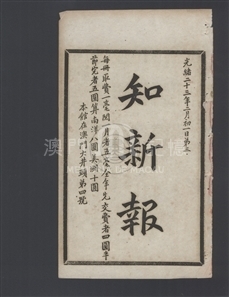 光緒二十三年二月初一日第三
知新報
每冊取費一毫閱一月者五毫全年先交費者四圓半
節完者五圓算南洋八圓美洲十圓
本館在澳門大井頭第四號